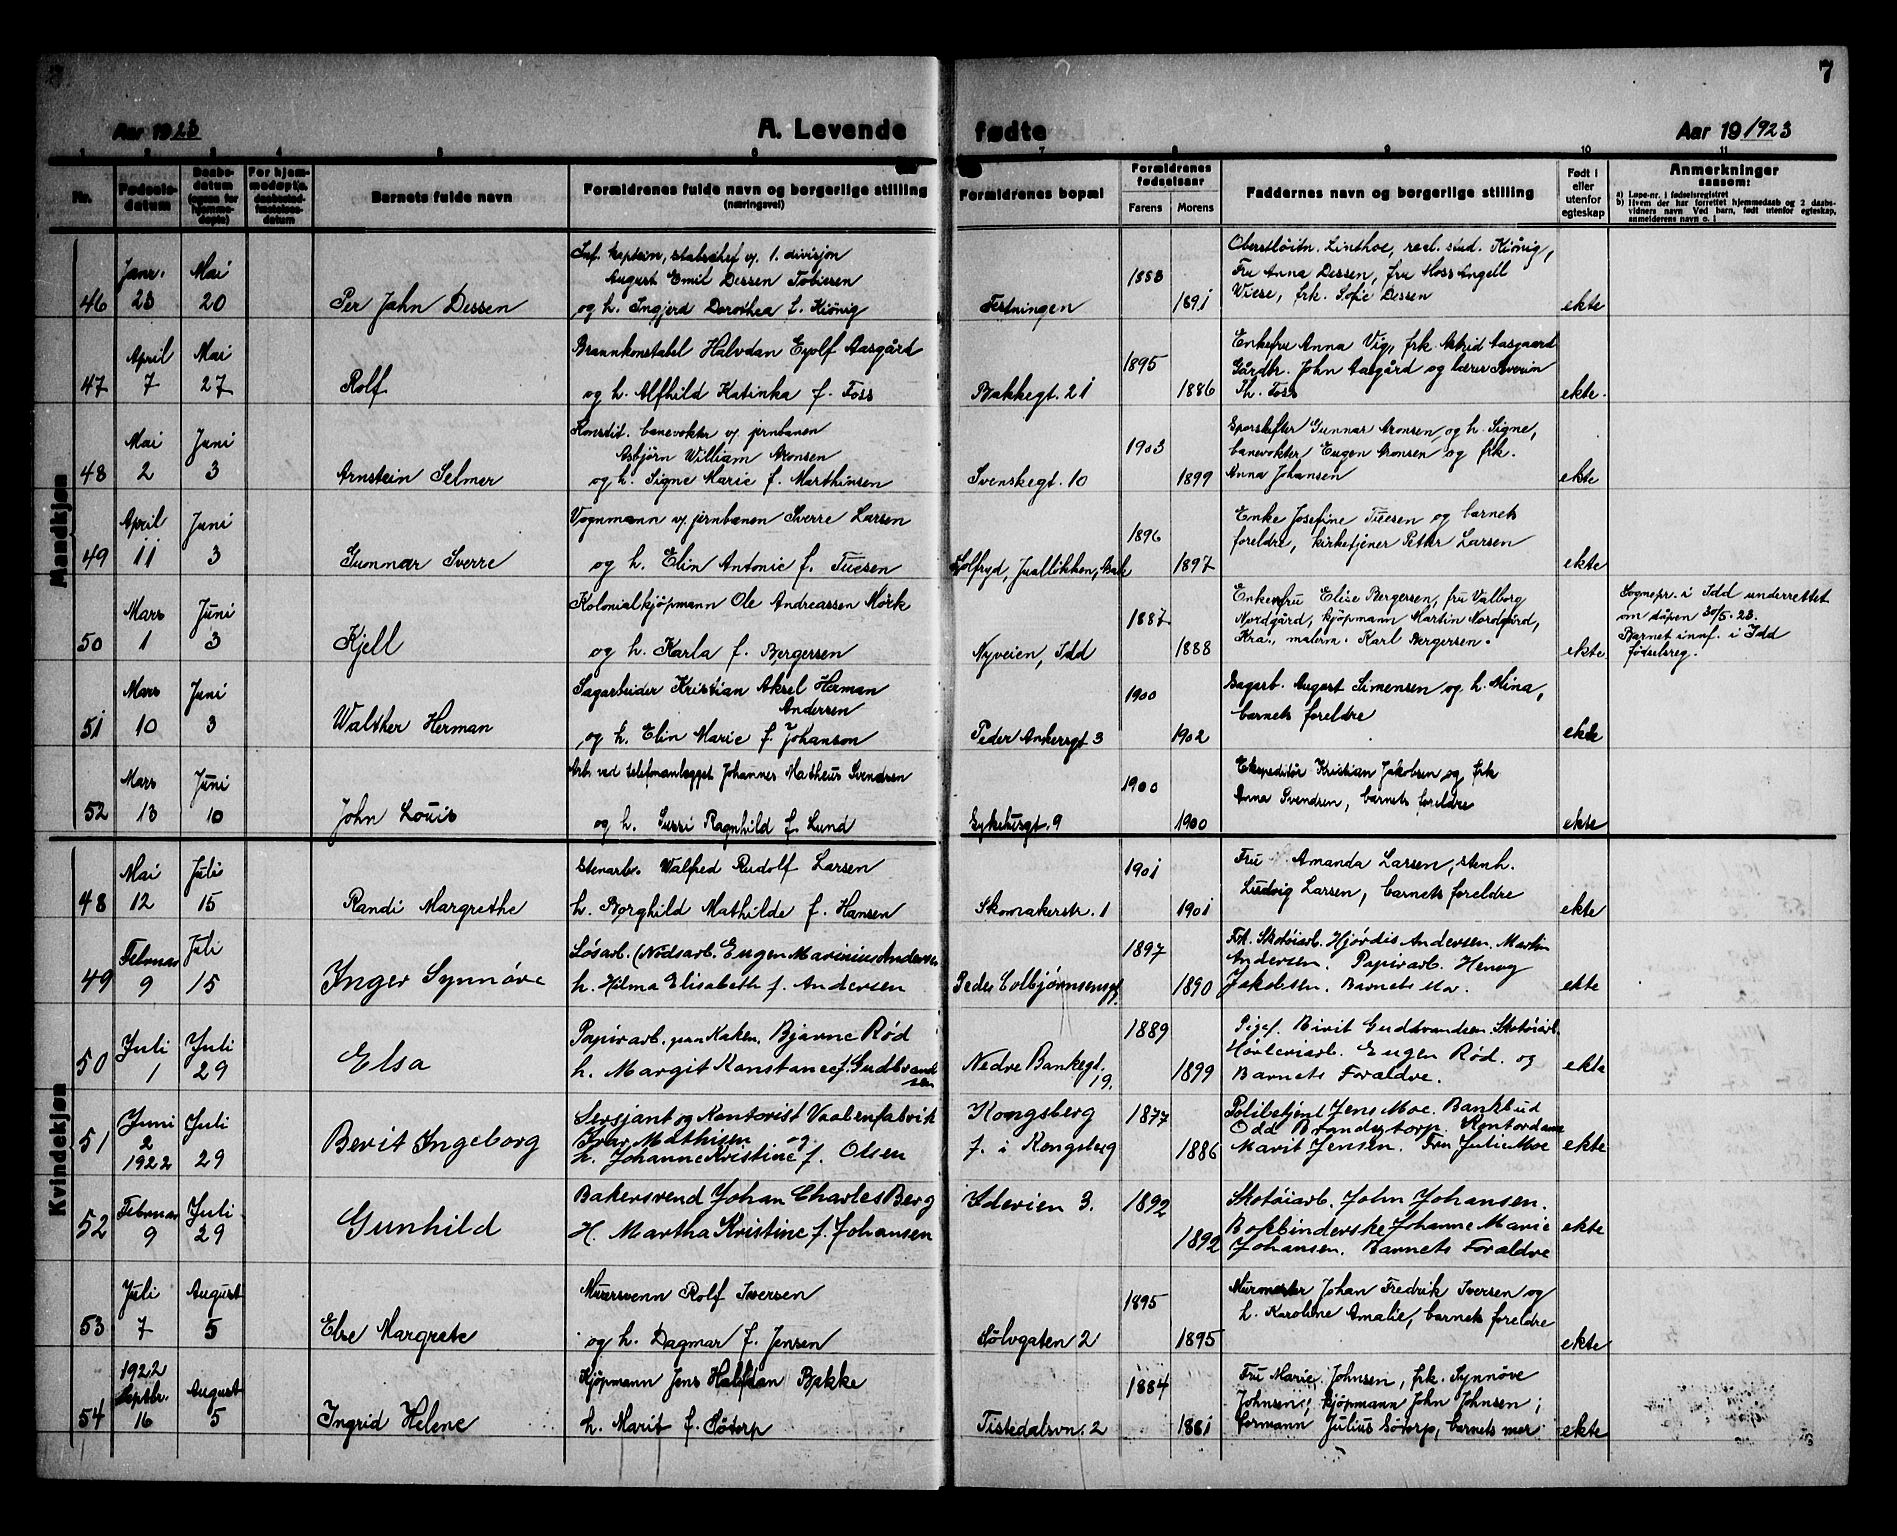 7
Aar 1923
A. Levende
fødte
Aar 19 1923
1 2 3 4 5 6 7 8 9 10 11
Nr.
Fødsels-
datum
Daabs-
datum
(ogsaa for
hjemme-
døpte)
For hjem-
medøpte,
daabsstad-
fæstelses-
datum
Barnets fulde navn
Forældrenes fulde navn og borgerlige stilling
(næringsvei)
Forældrenes bopæl
Forældrenes
fødselsaar
Farens
Morens
Faddernes navn og borgerlige stilling
Født i
eller
utenfor
egteskap
Anmerkninger
saasom:
a) Løpe-nr. i fødselsregistret
b) Hvem der har forrettet hjemmedaab og 2 daabs-
vidners navn Ved barn, født utenfor egteskap,
anmelderens navn o. l
Mandkjøn
46
Janr.
23
Mai
20
Per Jahn Dessen
Inf. kaptein, stabschef v. 1. divisjon
August Emil Dessen Tobiesen
og h. Ingjerd Dorothea f. Kiönig
Festningen
1883
1891
Oberstløitn. Linthoe, real. stud. Kiönig,
Fru Anna Dessen, fru Moss Angell
Wiese, frk. Sofie Dessen
ekte
47
April
7
Mai
27
Rolf
Brannkonstabel Halvdan Eyolf Aasgård
og h. Alfhild Katinka f. Foss
Bakkegt. 21
1895
1886
Enkefru Anna Vig, frk Astrid Aasgaard
Gårdbr. John Aasgård og lærer Severin
Th. Foss
ekte.
48
Mai
2
Juni
3
Arnstein Selmer
Konstit. banevokter v/ jernbanen
Asbjörn William Aronsen
og h. Signe Marie f. Marthinsen
Svenskegt. 10
1903
1899
Sporskifter Gunnar Aronsen og h. Signe,
banevokter Eugen Aronsen og frk.
Anna Johansen
ekte
49
April
11
Juni
3
Gunnar Sverre
Vognmann v/ jernbanen Sverre Larsen
og h. Elin Antonie f. Tuesen
1896
1897
Enke Josefine Tuesen og barnets
foreldre, kirketjener Petter Larsen
ekte
50
Mars
1
Juni
3
Kjell
Kolonialkjøpmann Ole Andreassen Mørk
og h. Karla f. Bergersen
Nyveien, Idd
1887
1888
Enkefru Elise Bergersen, fru Valborg
Nordgård, kjöpmann Martin Nordgård,
Kra., malerm. Karl Bergersen.
ekte
Sognepr. i Idd underrettet
om dåpen 30/5. 23.
Barnet innf. i Idd
fødselsreg.
51
Mars
10
Juni
3
Walther Herman
Sagarbeider Kristian Aksel Herman
Andersen
og h. Elin Marie f. Johanson
Peder Ankersgt 3
1900
1902
Sagarb. August Simensen og h. Mina,
barnets foreldre
ekte
52
Mars
13
Juni
10
John Louis
Arb. ved telefonanlegget Johannes Matheus Svendsen
og h. Sussi Ragnhild f. Lund
Sykehusgt. 9
1900
1900
Ekspeditör Kristian Jakobsen og frk
Anna Svendsen, barnets foreldre
ekte
Kvindekjøn
48
Mai
12
Juli
15
Randi Margrethe
Stenarb. Walfred Rudolf Larsen
h. Borghild Mathilde f. Hansen
Skomakerstr. 1
1901
1901
Fru Amanda Larsen, stenh.
Ludvig Larsen, barnets foreldre
ekte
49
Februar
9
Juli
15
Inger Synnöve
Løsarb. (Nødsarb. Eugen Marinius Andersen
h. Hilma Elisabeth f. Andersen
Peder Colbjørnsensgt
1897
1890
Frk. Skotöiarb. Hjördis Andersen. Martin
Andersen. Papirarb. Henry
Jakobsen. Barnets Mor.
ekte
50
Juli
1
Juli
29
Elsa
Papirarb. paa Saken. Bjarne Rød
h. Margit Konstance f. Gudbrand
sen
Nedre Bankegt.
19.
1889
1899
Pigef. Birit Gudbrandsen Skotöiarb.
Høvleriarb. Eugen Rød. og
Barnets Foraldre.
ekte
51
Juni
2
1922
Juli
29
Berit Ingeborg
Sersjant og Kontorist Vaabenfabrik
Ivar Mathisen og
h. Johanne Kristine f. Olsen
Kongsberg
f. i Kongsberg
1877
1886
Politibetjent Jens Moe. Bankbud
Odd Brandstorp. Kontordame
Marit Jensen. Fru Julie Moe
ekte
52
Februar
9
Juli
29
Gunhild
Bakersvend Johan Charles Berg
H. Martha Kristine f. Johansen
Iddeveien 3.
1892
1892
Skotöiarb. John Johansen.
Bokbinderske Johanne Marie
Johansen. Barnets Foraldre
ekte
53
Juli
7
August
5
Else Margrete
Mursvenn Rolf Iversen
og h. Dagmar f. Jensen
Sølvgaten 2
1895
1895
Murmester Johan Fredrik Iversen og
h. Karoline Amalie, barnets foreldre
ekte
54
1922
Septbr.
16
August
5
Ingrid Helene
Kjøpmann Jens Halfdan Bakke
h. Marit f. Søtorp
Tistedalsvn. 2
1884
1881
Fru Marie Johnsen, frk. Synnöve
Johnsen; kjøpmann John Johnsen;
formann Julius Søtorp, barnets mor
ekte